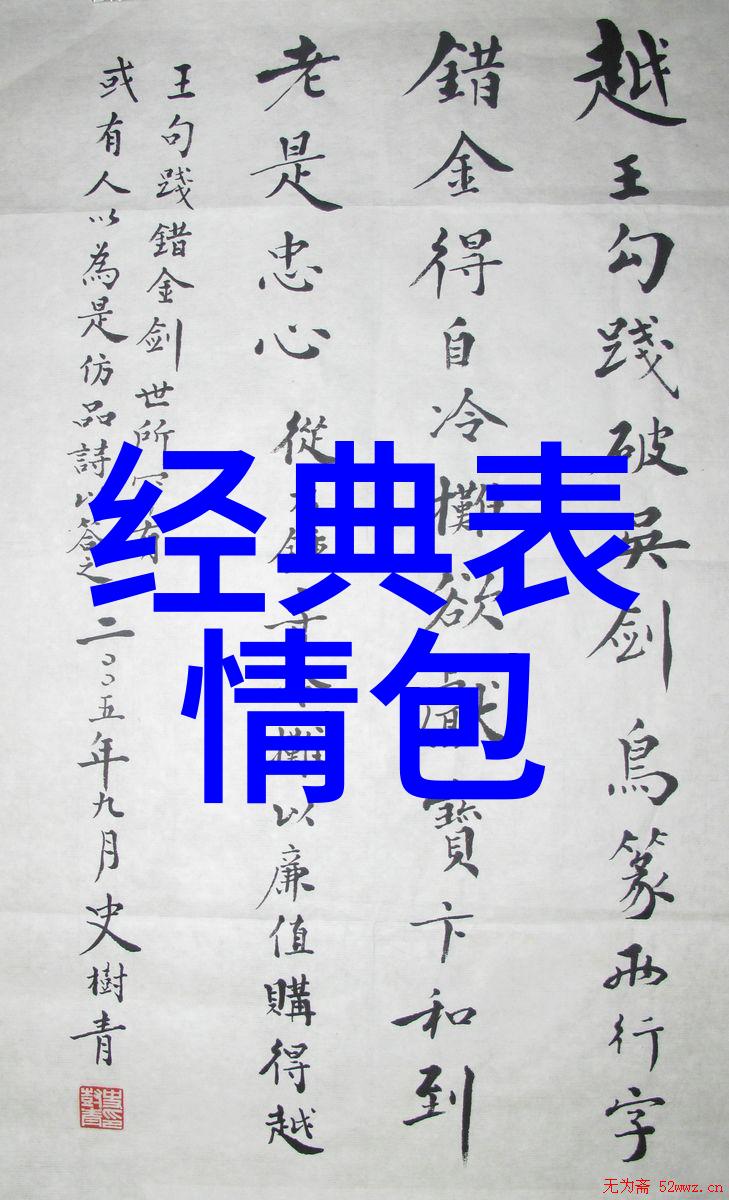 越王勾踐破吳剑鳥篆兩行字
錯金得自冷攤欲獻寶卞和到
老是忠心 從攤以廉值購得越
王句踐錯金剑世所有
或有人以為是仿品詩以答之 二〇〇五年九月史樹青
经典表
情包
无为斋 52wwz.cn